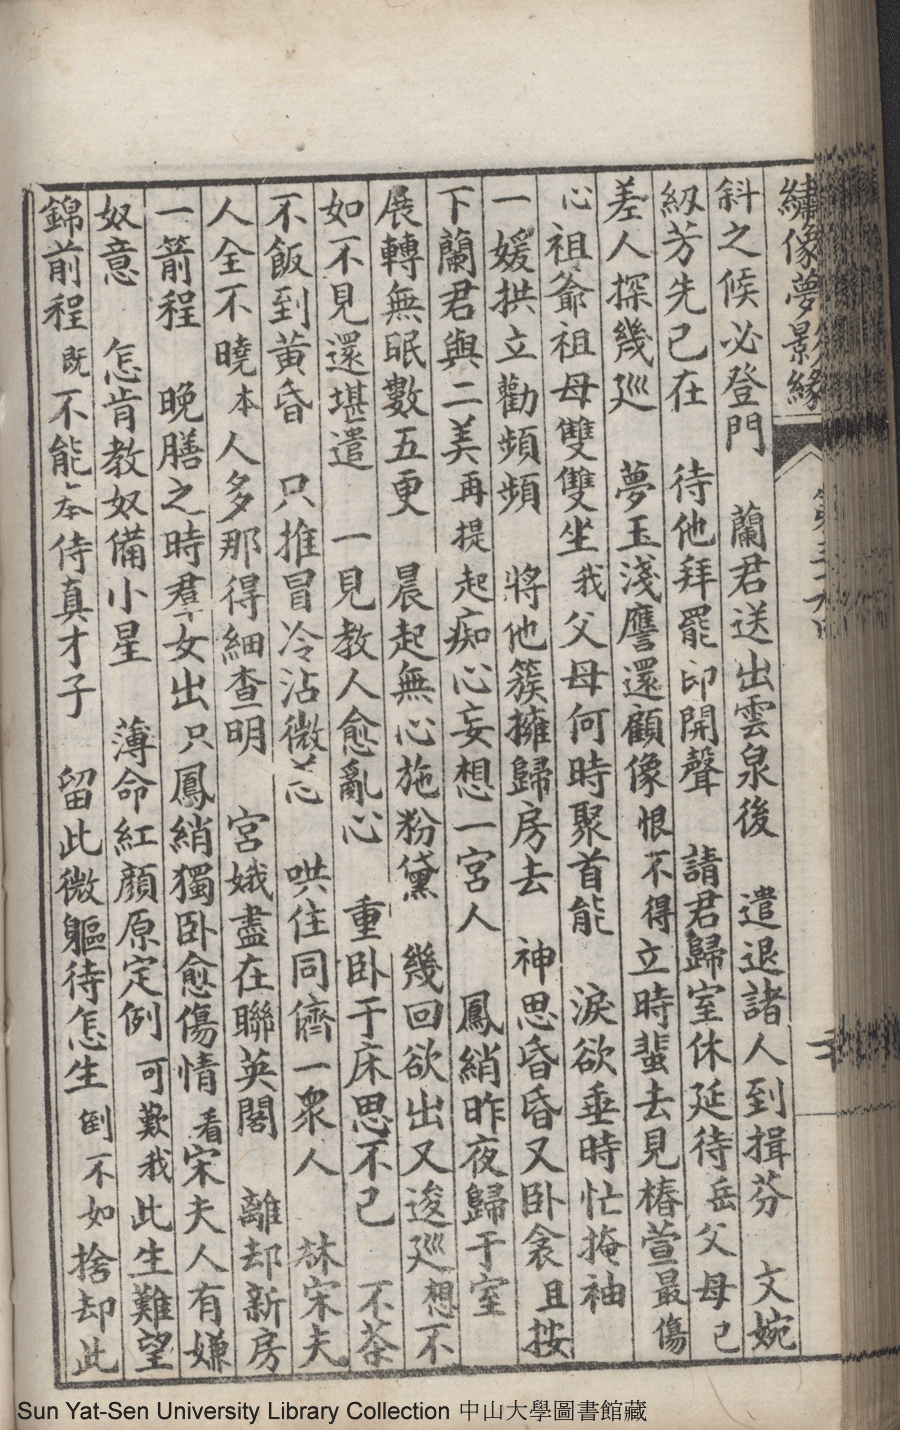 繡像夢影緣
斜之候必登門　蘭君送出雲泉後　遣退諸人到揖芬　文婉
紉芳先已在　待他拜罷卽開聲　請君歸室休延待岳父母已
差人探幾巡　夢玉淺譍還顧像恨不得立時蜚去見椿萱最傷
心祖爺祖母雙雙坐我父母何時聚首能　淚欲垂時忙掩袖
一媛拱立勸頻頻　將他簇擁歸房去　神思昏昏又卧衾且按
下蘭君與二美再提起痴心妄想一宮人　鳳綃昨夜歸于室
展轉無眠數五更　晨起無心施粉黛　幾回欲出又逡巡想不
如不見還堪遣　一見教人愈亂心　重卧于床思不已　不茶
不飯到黃昏　只推冒冷沾微恙　哄住同儕一衆人　宋夫
人全不曉本人多那得細查明　宮娥盡在聯英閣　離却新房
一箭程　晚膳之時羣女出只鳳綃獨卧愈傷情看宋夫人有嫌
奴意　怎肯教奴備小星　薄命紅顏原定例可歎我此生難望
錦前程既不能夲侍真才子　留此微軀待怎生倒不如捨却此
Sun Yat-Sen University Library Collection 中山大學圖書館藏